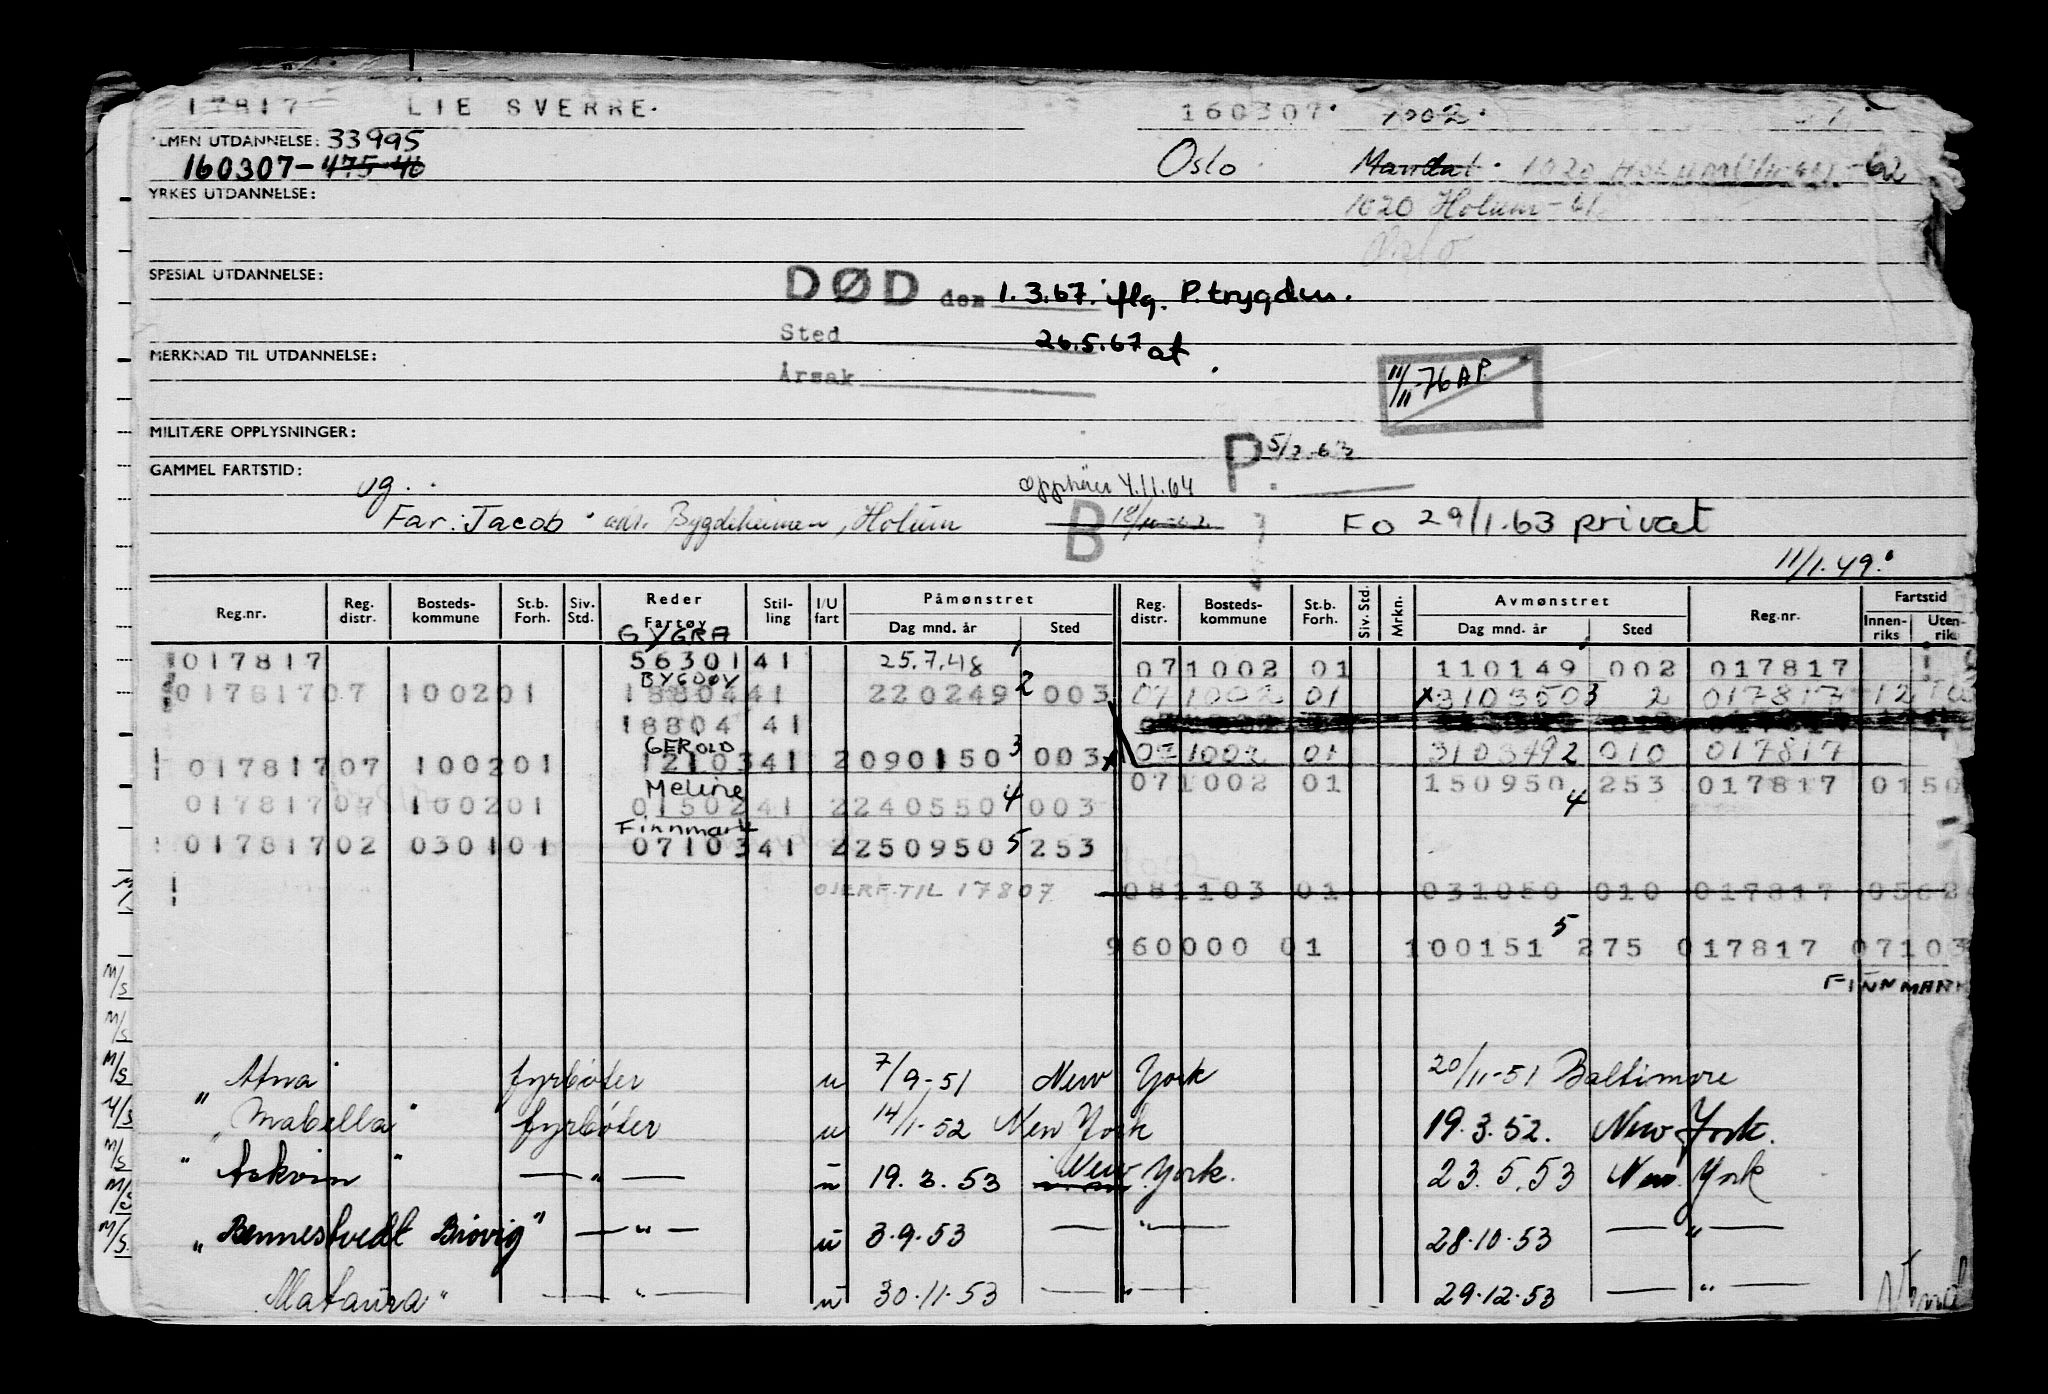 17817 LIE SVERRE. 160307. 7002.
LMEN UTDANNELSE: 33995
160307-475-40 Oslo Mandal. 1020 -62
YRKES UTDANNELSE: 1020 Holum-61
Oslo
SPESIAL UTDANNELSE:
DØD den 1.3.67. iflg. P.trygden.
Sted 26.5.67 at
MERKNAD TIL UTDANNELSE:
Årsak 11/11-76 AP.
MILITÆRE OPPLYSNINGER:
P 5/2-63
GAMMEL FARTSTID:
ug. opphører 4.11.64
Far: Jacob adr. Bygdeheimen, Holum B FO 29/1.63 privat
11/1.49.
Reg.nr. Reg. distr. Bosteds-kommune St.b. Forh. Siv. Std. Reder Fartøy Stil-ling I/U fart Påmønstret Dag mnd. år Sted Reg. distr. Bosteds-kommune St.b. Forh. Siv. Std. Mrkn. Avmønstret Dag mnd. år Sted Reg.nr. Fartstid Innen-riks Uten-rik
GYGRA
017817 56301 41 25.7.48 1 07 1002 01 110149 002 017817
BYGDØY
017817 07 1002 01 18804 41 220249 2 003 07 1002 01 x3103503 2 017817 12
18804 41
GEROLD
017817 07 1002 01 12103 41 2090150 3 003 x 07 1002 01 310349 2 010 017817
Meline
071002 01 150950 4 253 017817 0150
017817 07 1002 01 01502 41 2240550 4 003
Finnmark
017817 02 0301 01 07103 41 2250950 5 253
OVERF. TIL 17807 081103 01 031050 010 017817 0562
960000 01 100151 5 275 017817 07103
FINNMARK
M/S
M/S
M/S "Atna" fyrbøter u 7/9-51 New York 20/11-51 Baltimore
M/S "Mabella" fyrbøter u 14/1-52 New York 19.3.52. New York.
M/S "Askvin" — " — u 19.3.53 New York. 23.5.53 New York
M/S "Bennestvedt Brøvig" — " — u 3.9.53 — " — 28.10.53 — " —
M/S "Mataura" — " — u 30.11.53 — " — 29.12.53 — " —